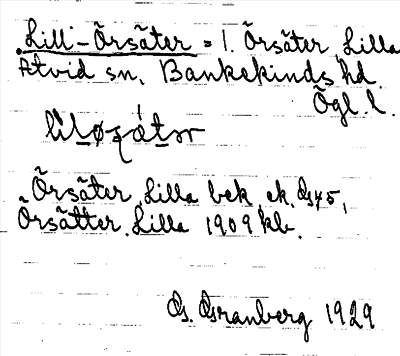 Lill-Örsäter = l. Örsäter, Lilla
Åtvid sn, Bankekinds hd
Ögl. l.
Örsäter, Lilla bek. ek. Gs 45,
Örsätter, Lilla 1909 kb.
G. Granberg 1929